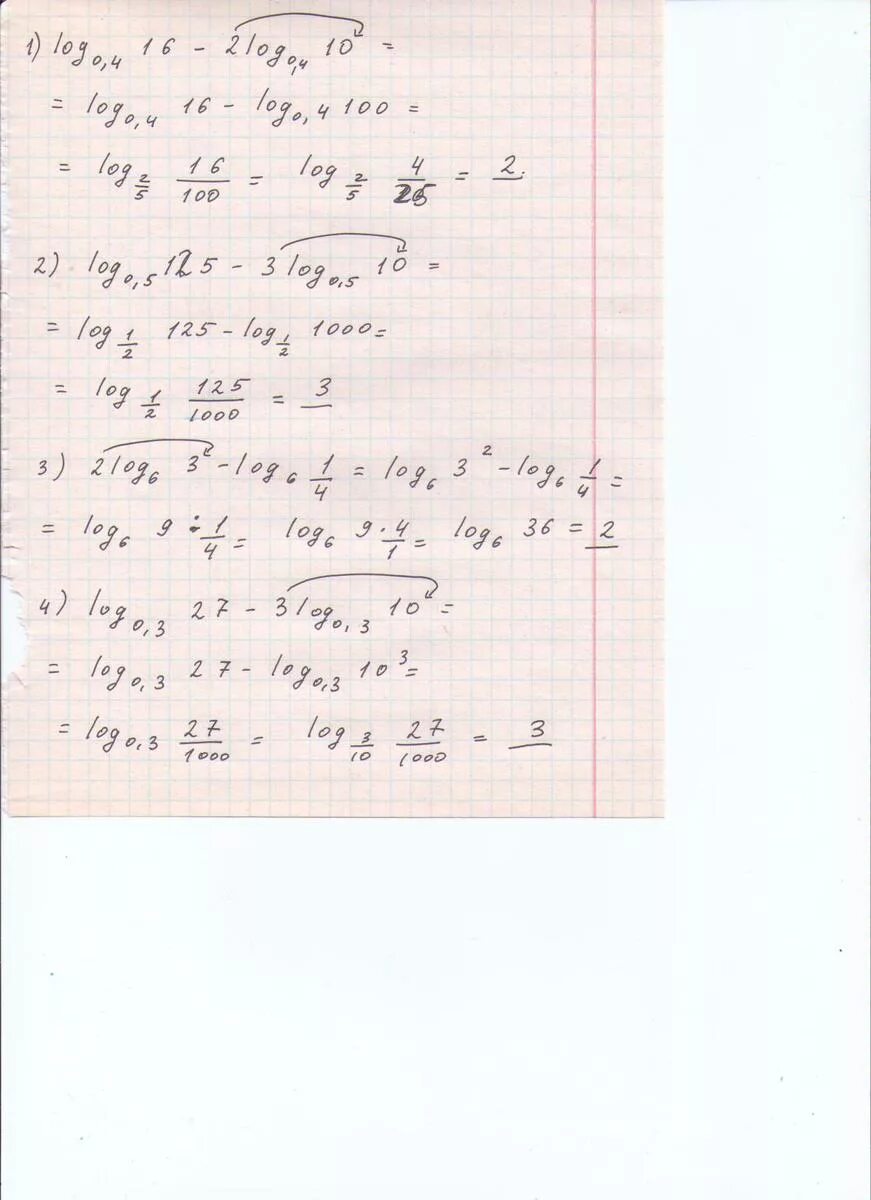 1) log₀,₄ 16 - 2log₀,₄ 10 =
= log₀,₄ 16 - log₀,₄ 100 =
= log_{2/5} 16/100 = log_{2/5} 4/25 = 2.
2) log₀,₅ 125 - 3log₀,₅ 10 =
= log_{1/2} 125 - log_{1/2} 1000 =
= log_{1/2} 125/1000 = 3
3) 2log₆ 3 - log₆ 1/4 = log₆ 3² - log₆ 1/4 =
= log₆ 9 ÷ 1/4 = log₆ 9 · 4/1 = log₆ 36 = 2
4) log₀,₃ 27 - 3log₀,₃ 10 =
= log₀,₃ 27 - log₀,₃ 10³ =
= log₀,₃ 27/1000 = log_{3/10} 27/1000 = 3